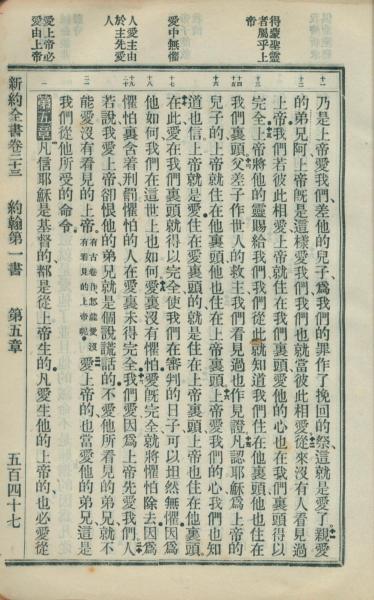 得蒙聖靈
者屬乎上
帝
愛中無懼
人愛主由
於主先愛
人
愛上帝必
愛由上帝
乃是上帝愛我們、差他的兒子、爲我們的罪作了挽回的祭、這就是愛了。親愛
的弟兄阿、上帝旣是這樣愛我們、我們也就當彼此相愛。從來沒有人看見過
上帝、我們若彼此相愛、上帝就住在我們裏頭、愛他的心也在我們裏頭得以
完全。上帝將他的靈賜給我們、我們從此就知道我們住在他裏頭、他也住在
我們裏頭。父差子作世人的救主、我們看見過、也作見證。凡認耶穌爲上帝的
兒子的、上帝就住在他裏頭、他也住在上帝裏頭。上帝愛我們的心、我們也知
道也信、上帝就是愛、住在愛裏頭的、就是住在上帝裏頭、上帝也住在他裏頭。
在此愛在我們裏頭就得以完全、使我們在審判的日子、可以坦然無懼、因爲
他如何、我們在這世上也如何。愛裏沒有懼怕、愛旣完全、就將懼怕除去、因爲
懼怕裏含着刑罰、懼怕的人在愛裏未得完全。我們愛、因爲上帝先愛我們。人
若說我愛上帝、卻恨他的弟兄、就是個說謊話的、不愛他所看見的弟兄、就不
能愛沒有看見的上帝。有古卷作怎能愛沒有看見的上帝呢愛上帝的、也當愛他的弟兄、這是
我們從他所受的命令。
第五章 凡信耶穌是基督的、都是從上帝生的、凡愛生他的上帝的、也必愛從
新約全書卷二十三 約翰第一書 第五章 五百四十七